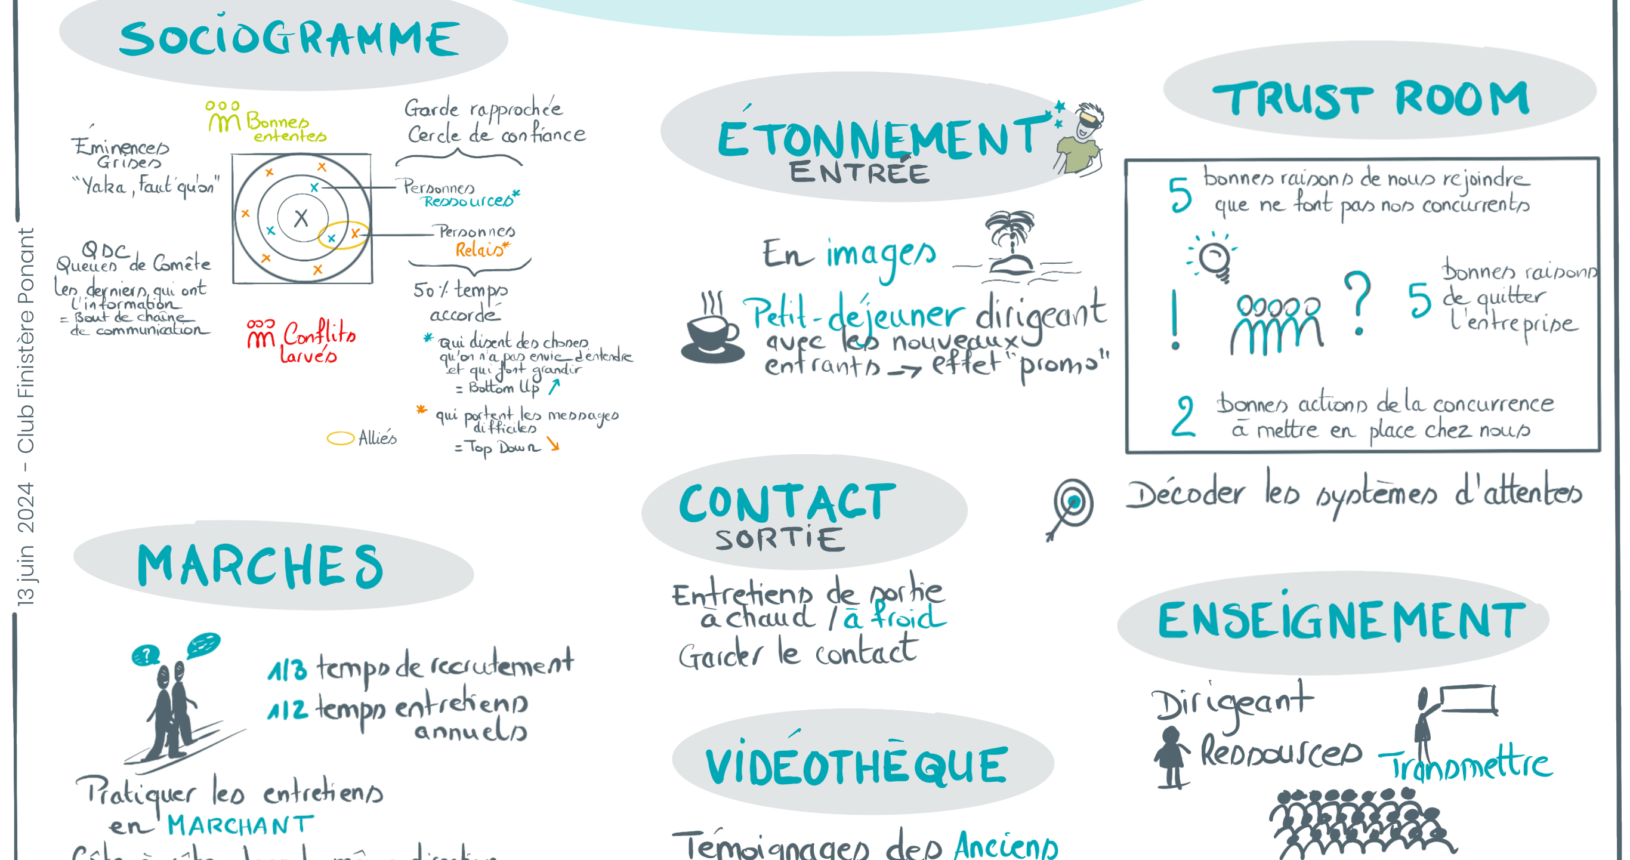 13 juin 2024 - Club Finistère Ponant
SOCIOGRAMME
Bonnes
ententes
Éminences
Grises
"Yaka, Faut qu'on"
Garde rapprochée
Cercle de confiance
Personnes
Ressources*
Personnes
Relais*
QDC
Queues de Comête
Les derniers qui ont
l'information
= Bout de chaîne
de communication
Conflits
larvés
50% temps
accordé
* qui disent des choses
qu'on n'a pas envie d'entendre
et qui font grandir
= Bottom Up
* qui portent les messages
difficiles
= Top Down
Alliés
MARCHES
?
1/3 temps de recrutement
1/2 temps entretiens
annuels
Pratiquer les entretiens
en MARCHANT
ÉTONNEMENT
ENTRÉE
En images
Petit-déjeuner dirigeant
avec les nouveaux
entrants → effet "promo"
CONTACT
SORTIE
Entretiens de sortie
à chaud / à froid
Garder le contact
VIDÉOTHÈQUE
Témoignages des Anciens
TRUST ROOM
5 bonnes raisons de nous rejoindre
que ne font pas nos concurrents
! ?
5 bonnes raisons
de quitter
l'entreprise
2 bonnes actions de la concurrence
à mettre en place chez nous
Décoder les systèmes d'attentes
ENSEIGNEMENT
Dirigeant
Ressources
Transmettre